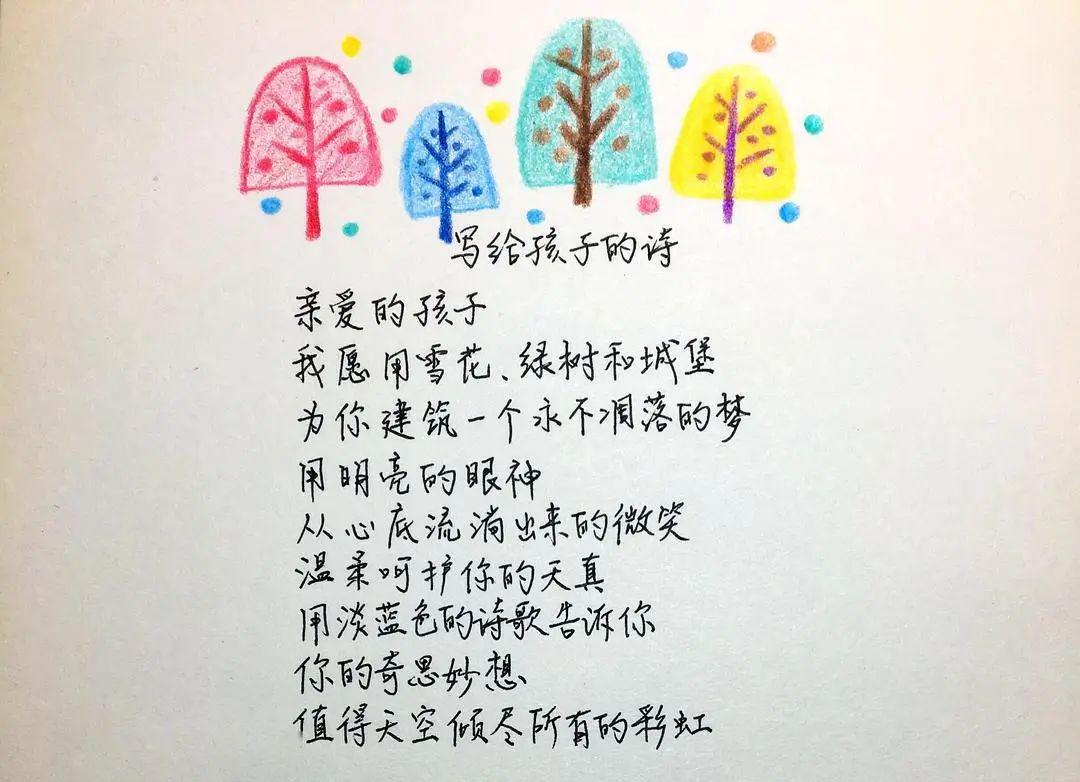 写给孩子的诗
亲爱的孩子
我愿用雪花、绿树和城堡
为你建筑一个永不凋落的梦
用明亮的眼神
从心底流淌出来的微笑
温柔呵护你的天真
用淡蓝色的诗歌告诉你
你的奇思妙想
值得天空倾尽所有的彩虹